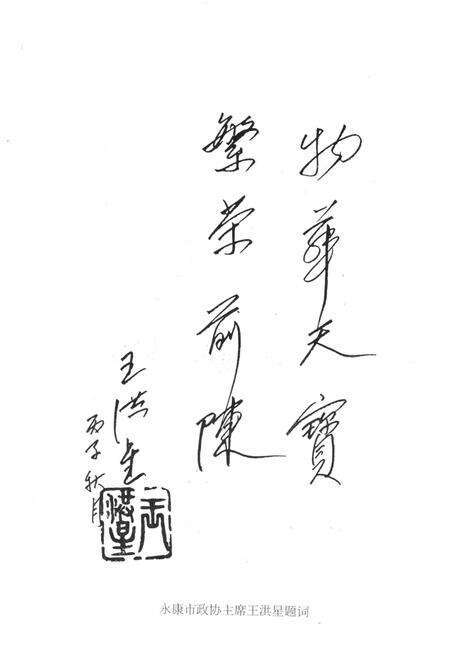 物華天寶
繁荣前陳
王洪星
丙子秋月
王洪星
永康市政协主席王洪星题词